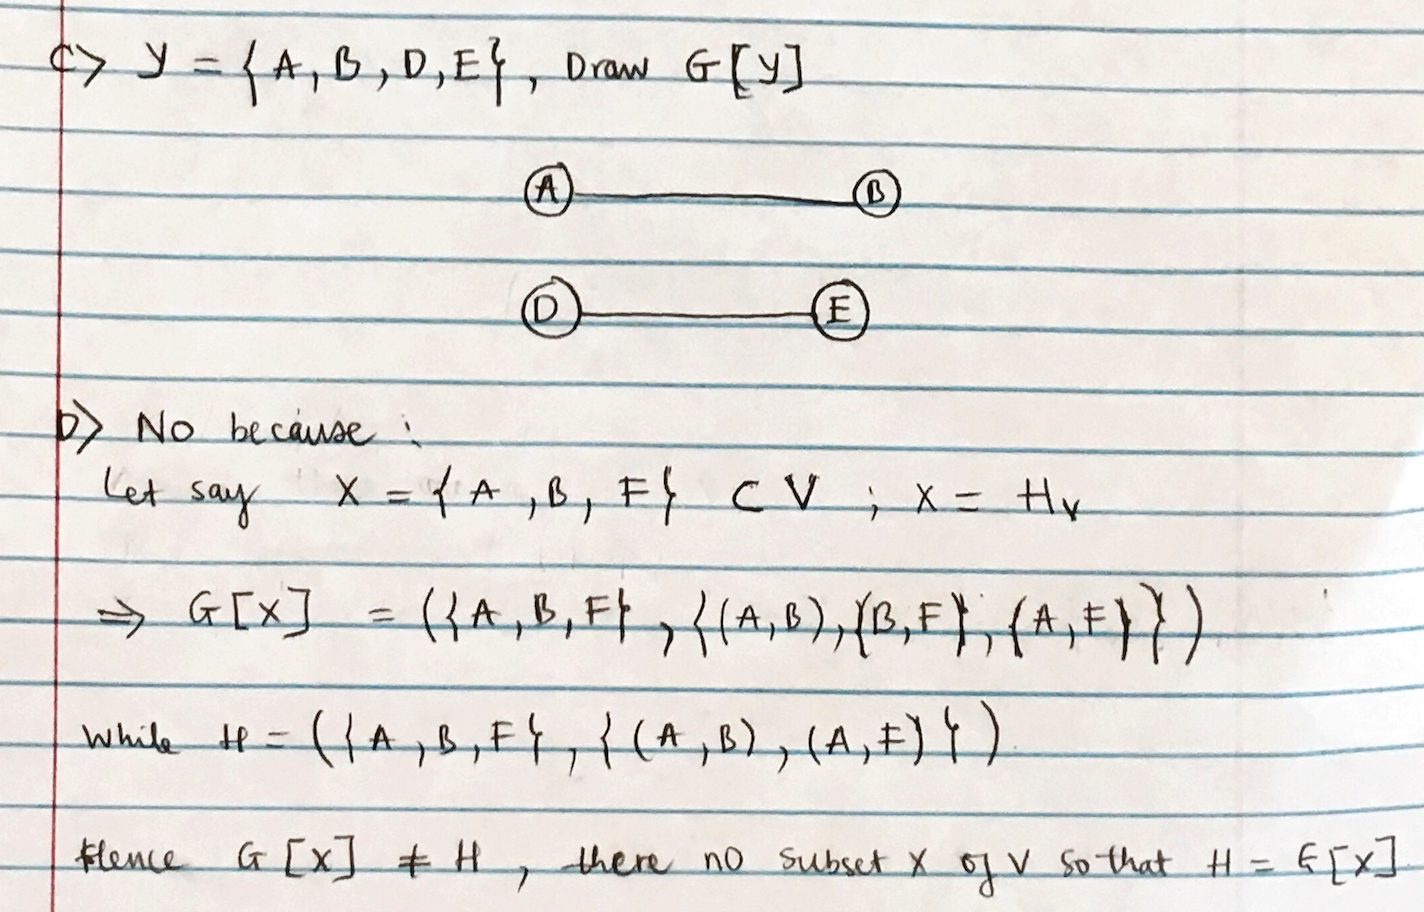 C> Y = {A, B, D, E}, Draw G[Y]
A B
D E
D> No because :
Let say X = {A, B, F} ⊂ V ; X = Hv
⇒ G[X] = ({A, B, F}, {(A, B), (B, F), (A, F)})
While H = ({A, B, F}, {(A, B), (A, F)})
Hence G[X] ≠ H, there no subset X of V so that H = G[X]